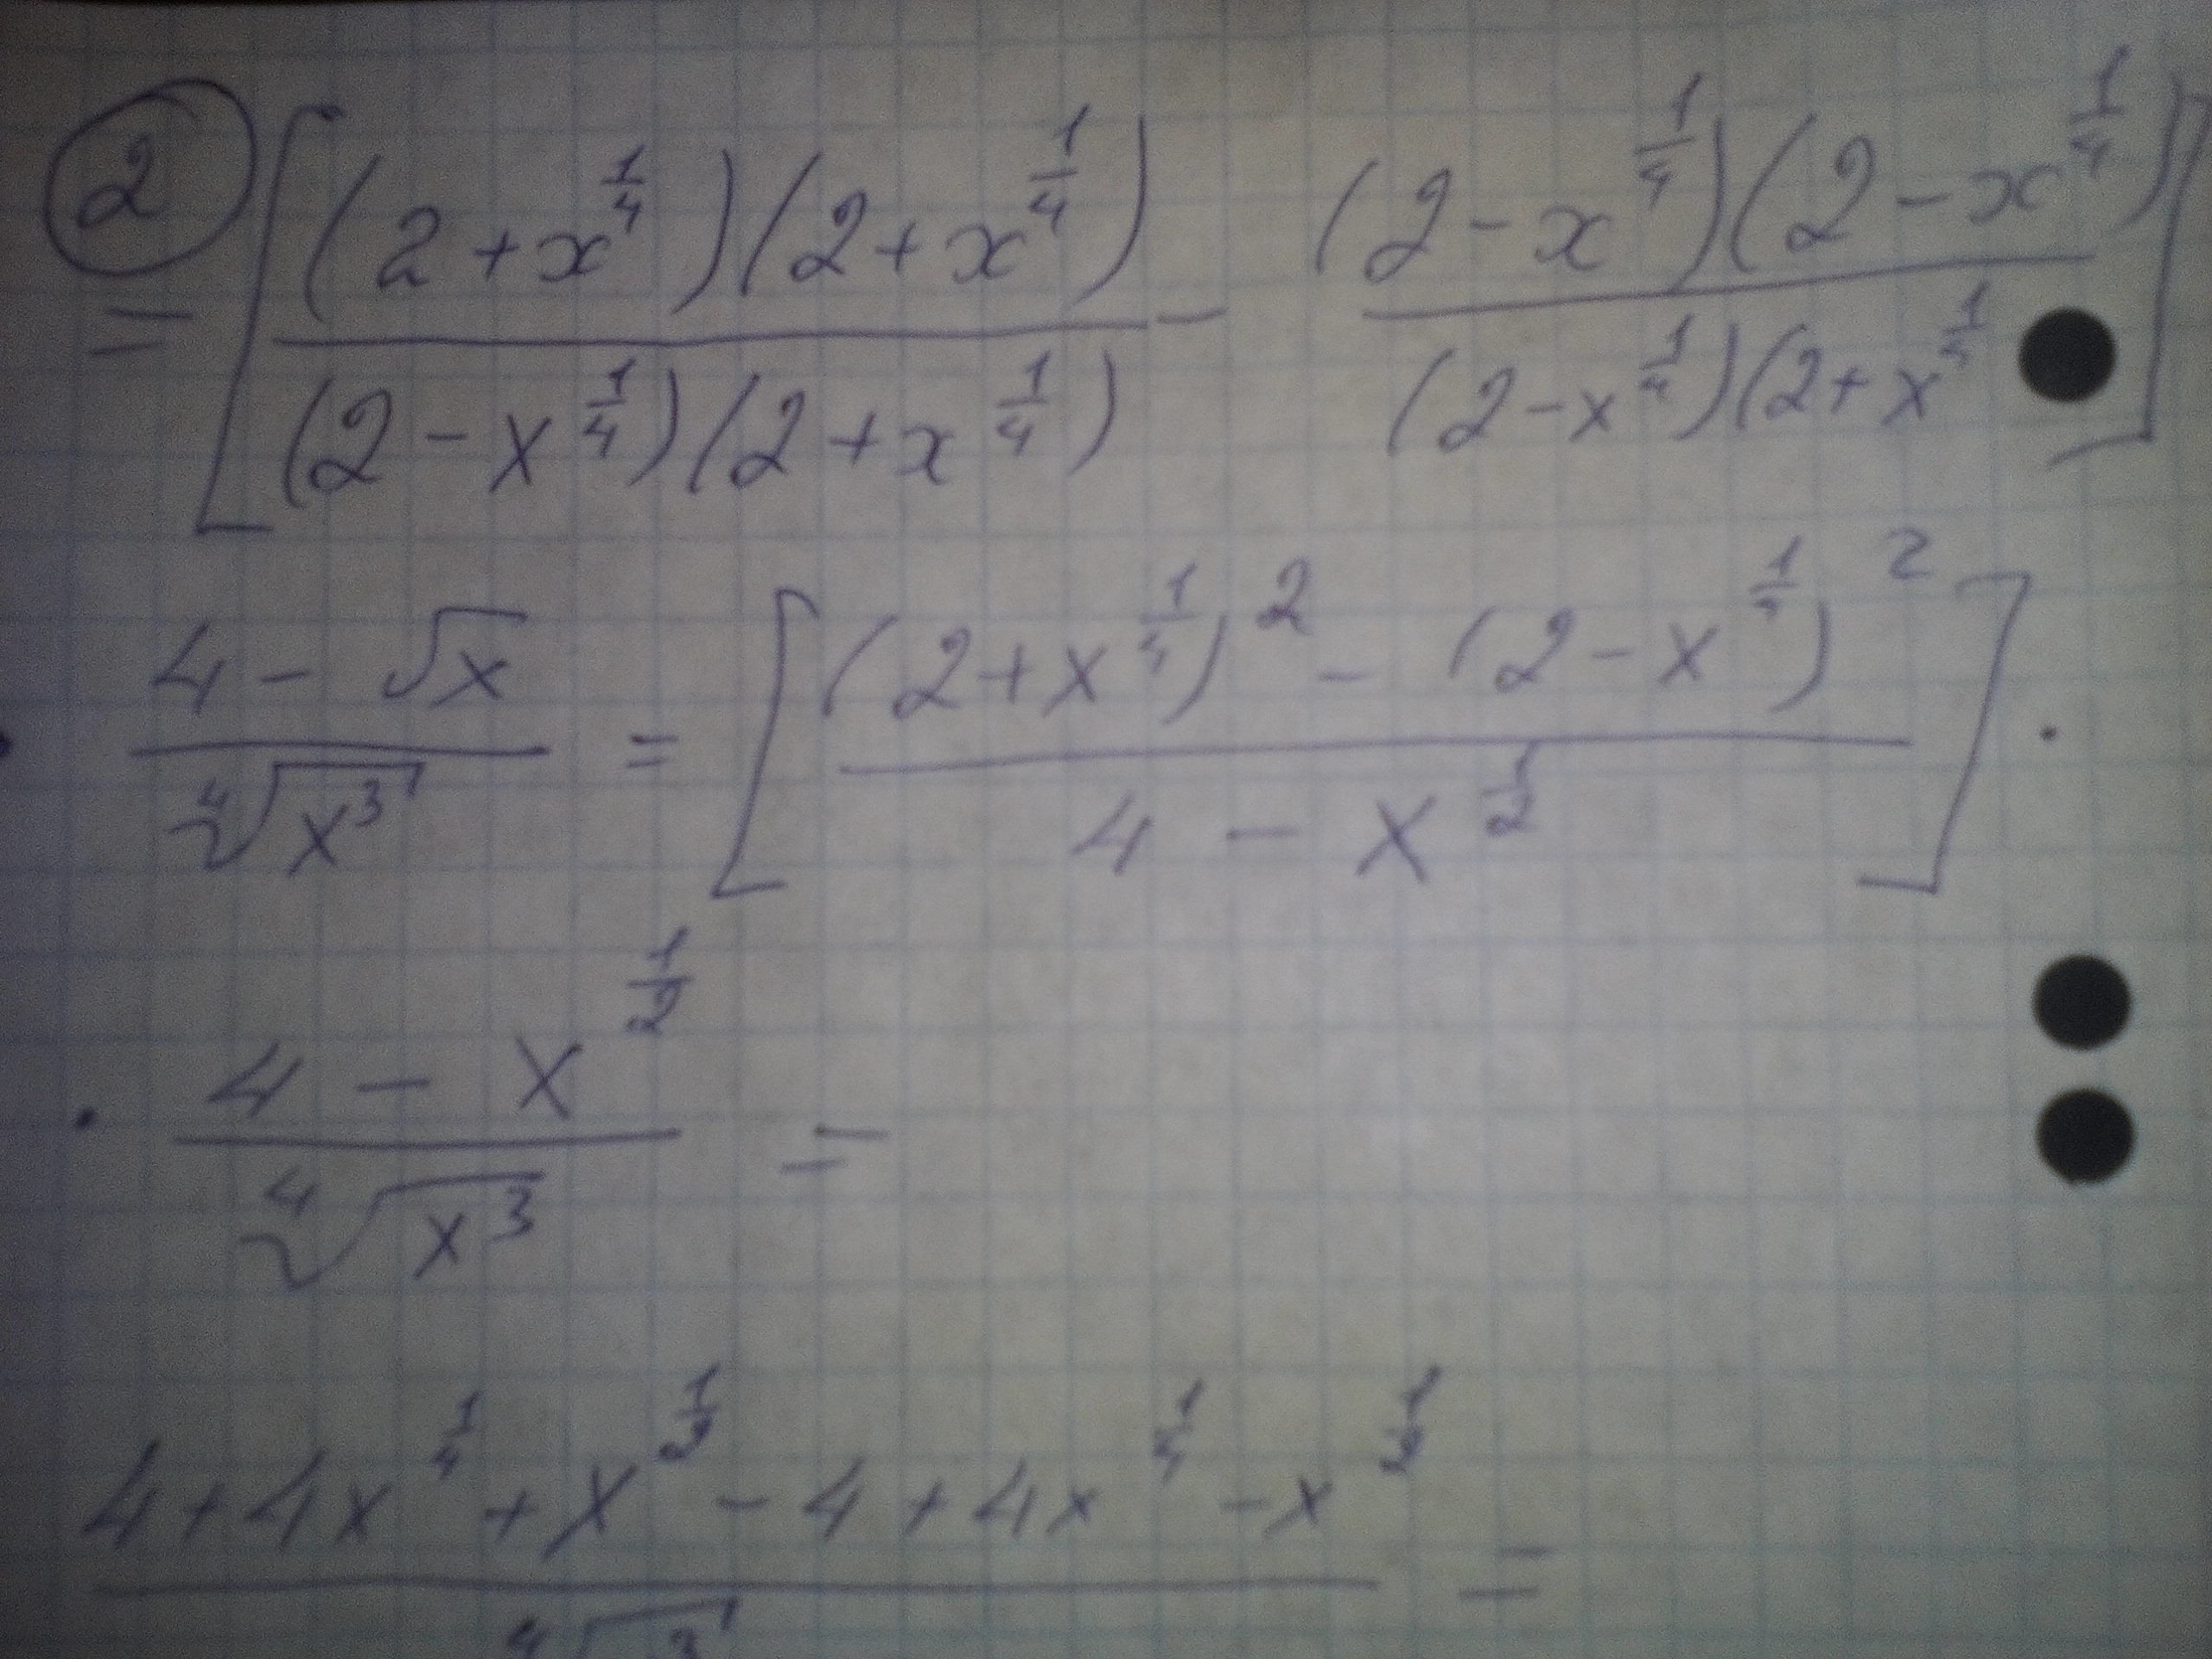 ② = [ (2 + x^(1/4))(2 + x^(1/4)) / (2 - x^(1/4))(2 + x^(1/4)) - (2 - x^(1/4))(2 - x^(1/4)) / (2 - x^(1/4))(2 + x^(1/4)) ]
· (4 - √x) / ⁴√(x³) = [ ((2 + x^(1/4))² - (2 - x^(1/4))²) / (4 - x^(1/2)) ] ·
· (4 - x^(1/2)) / ⁴√(x³) =
(4 + 4x^(1/4) + x^(1/2) - 4 + 4x^(1/4) - x^(1/2)) / ⁴√ ³ =